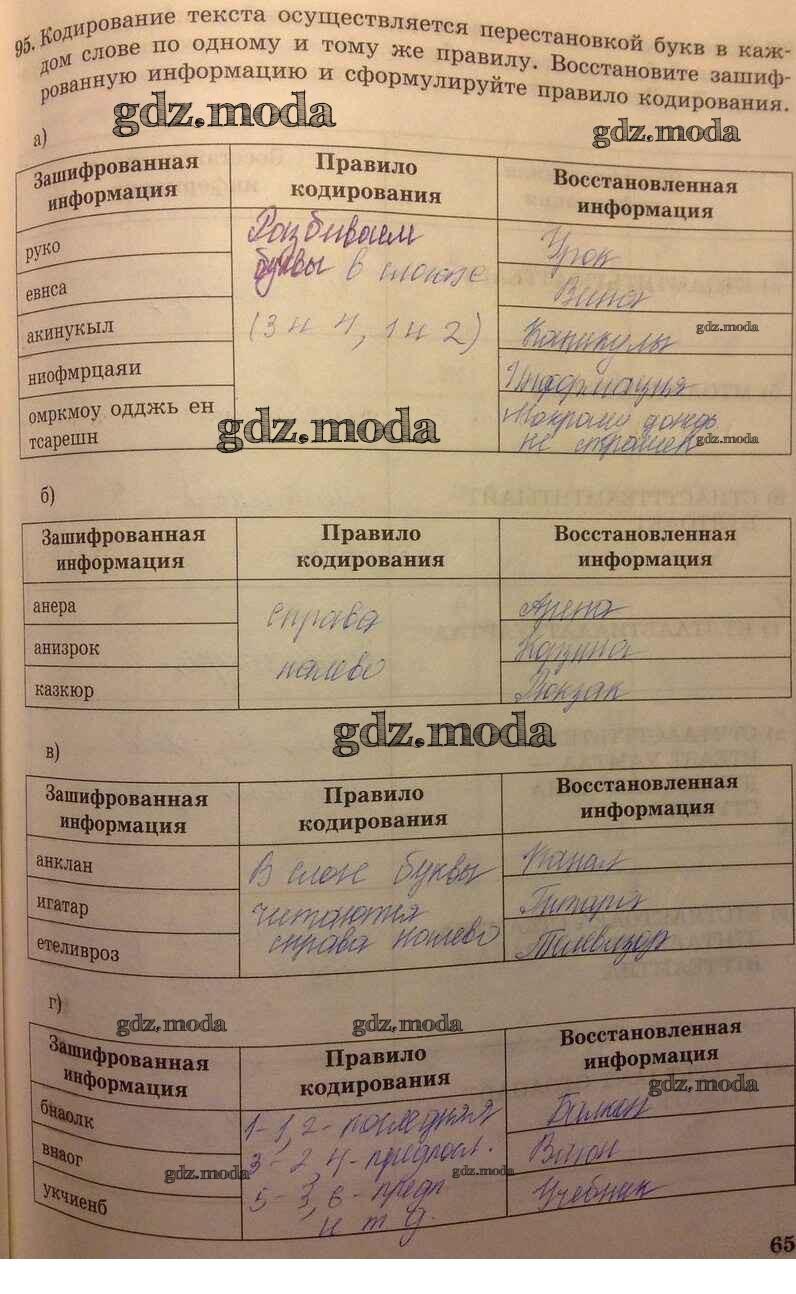 95. Кодирование текста осуществляется перестановкой букв в каж-
дом слове по одному и тому же правилу. Восстановите зашиф-
рованную информацию и сформулируйте правило кодирования.
gdz.moda
gdz.moda
а)
Зашифрованная информация
Правило кодирования
Восстановленная информация
руко
Разбиваем
Урок
буквы в слове
евнса
Весна
акинукыл
(3 и 4, 1 и 2)
Каникулы
gdz.moda
ниофмрцаяи
Информация
омркмоу одджь ен
Мокрому дождь
тсарешн
gdz.moda
не страшен
gdz.moda
б)
Зашифрованная информация
Правило кодирования
Восстановленная информация
анера
справа
Арена
анизрок
налево
Корзина
казкюр
Рюкзак
gdz.moda
в)
Зашифрованная информация
Правило кодирования
Восстановленная информация
анклан
В слоге буквы
Канал
игатар
читаются
Гитара
етеливроз
справа налево
Телевизор
г)
gdz.moda
gdz.moda
Зашифрованная информация
Правило кодирования
Восстановленная информация
gdz.moda
бнаолк
1-1, 2-последняя
Балкон
внаог
3-2, 4-предпосл.
Вагон
gdz.moda
gdz.moda
укчиенб
5-3, 6-предп
Учебник
и т д.
65